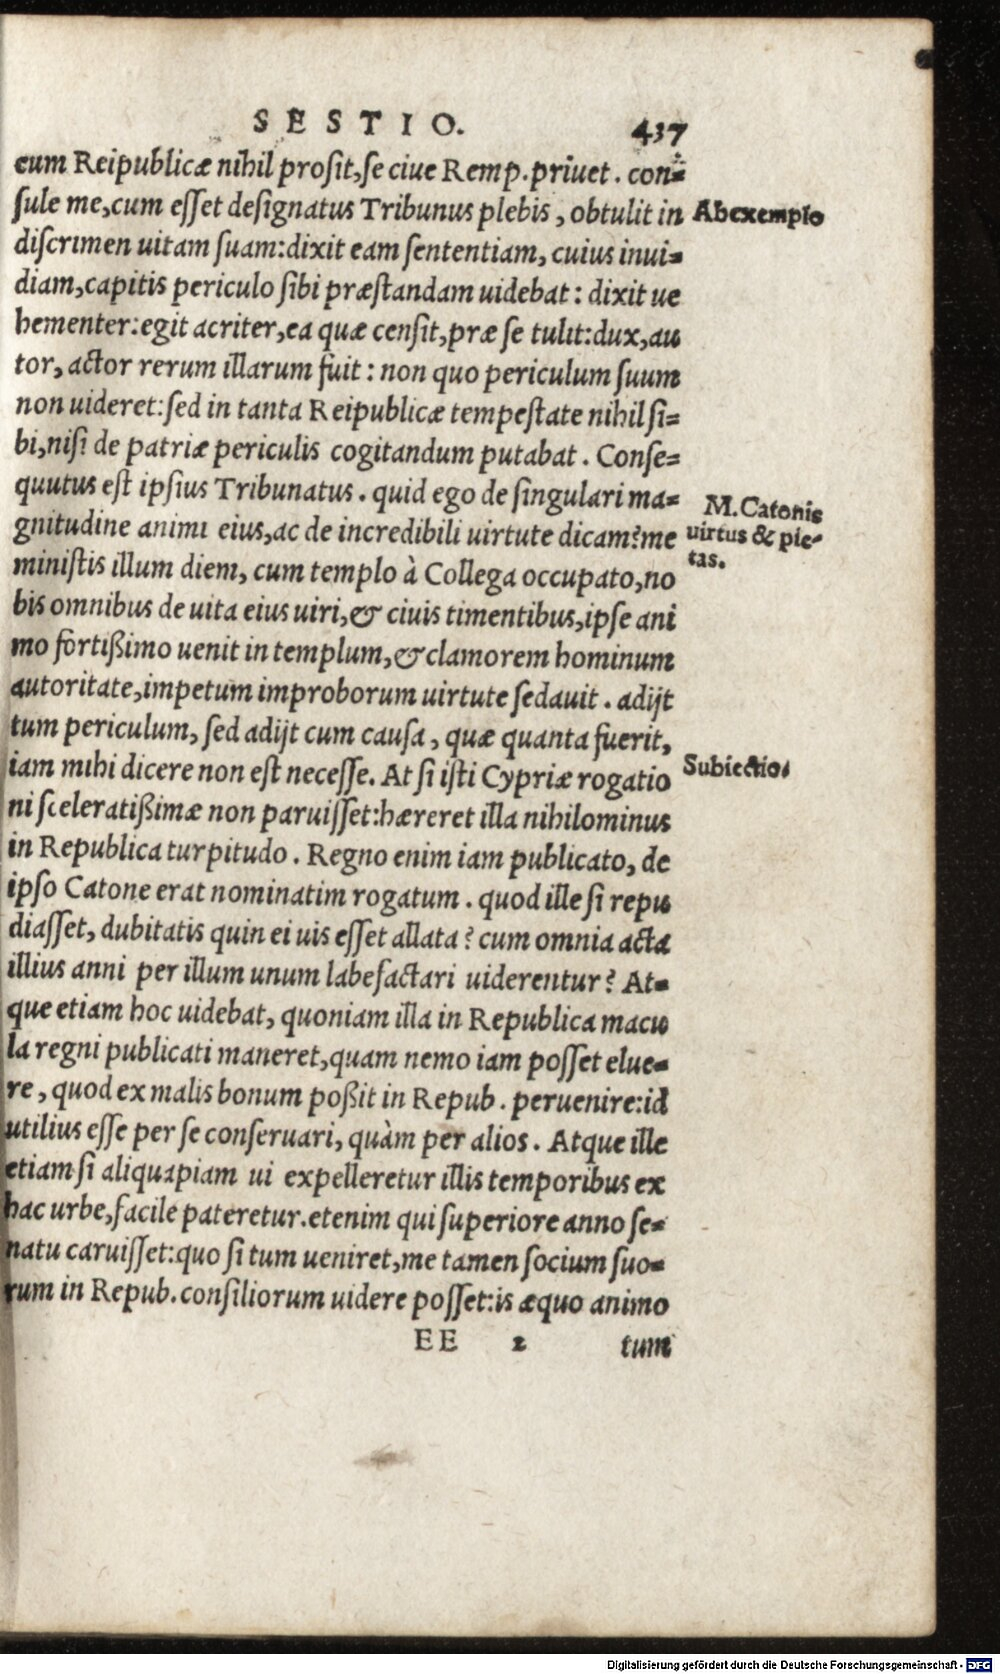 SESTIO. 437
cum Reipublicæ nihil prosit, se ciue Remp. priuet. con=
sule me, cum esset designatus Tribunus plebis, obtulit in
Ab exemplo
discrimen uitam suam: dixit eam sententiam, cuius inui=
diam, capitis periculo sibi præstandam uidebat: dixit ue
hementer: egit acriter, ea quæ censit, præ se tulit: dux, au
tor, actor rerum illarum fuit: non quo periculum suum
non uideret: sed in tanta Reipublicæ tempestate nihil si=
bi, nisi de patriæ periculis cogitandum putabat. Conse=
quutus est ipsius Tribunatus. quid ego de singulari ma=
M. Catonis
gnitudine animi eius, ac de incredibili uirtute dicam? me
uirtus & pie-
tas.
ministis illum diem, cum templo à Collega occupato, no
bis omnibus de uita eius uiri, & ciuis timentibus, ipse ani
mo fortißimo uenit in templum, & clamorem hominum
autoritate, impetum improborum uirtute sedauit. adijt
tum periculum, sed adijt cum causa, quæ quanta fuerit,
iam mihi dicere non est necesse. At si isti Cypriæ rogatio
Subiectio.
ni sceleratißimæ non paruisset: hæreret illa nihilominus
in Republica turpitudo. Regno enim iam publicato, de
ipso Catone erat nominatim rogatum. quod ille si repu
diasset, dubitatis quin ei uis esset allata? cum omnia acta
illius anni per illum unum labefactari uiderentur? At=
que etiam hoc uidebat, quoniam illa in Republica macu
la regni publicati maneret, quam nemo iam posset elue=
re, quod ex malis bonum poßit in Repub. peruenire: id
utilius esse per se conseruari, quàm per alios. Atque ille
etiam si aliquapiam ui expelleretur illis temporibus ex
hac urbe, facile pateretur. etenim qui superiore anno se=
natu caruisset: quo si tum ueniret, me tamen socium suo=
rum in Repub. consiliorum uidere posset: is æquo animo
EE 2 tum
Digitalisierung gefördert durch die Deutsche Forschungsgemeinschaft - DFG